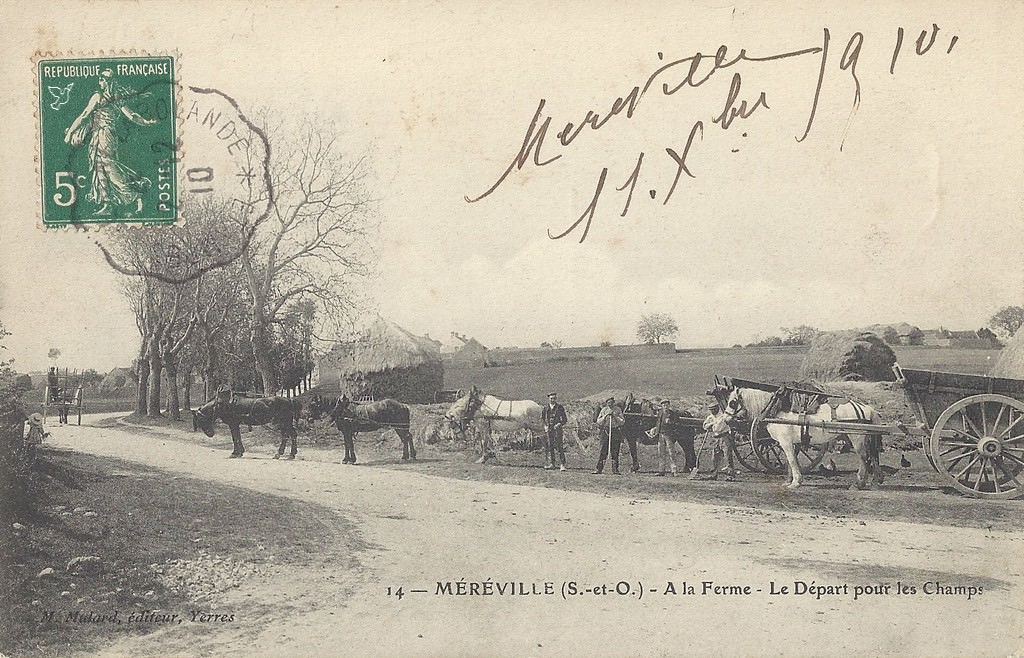 REPUBLIQUE FRANÇAISE
5c
POSTES
ANDE *
12
10
Mereville 1910.
11. Xbre
14 — MÉRÉVILLE (S.-et-O.) - A la Ferme - Le Départ pour les Champs
M. Mulard, éditeur, Yerres